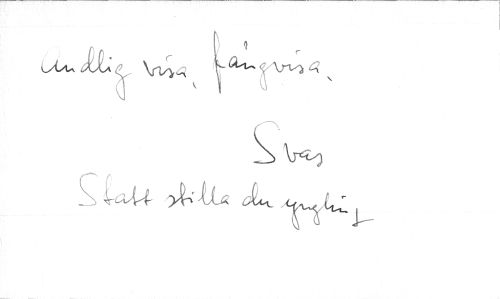 Andlig visa, fångvisa.
Svar
Statt stilla du yngling